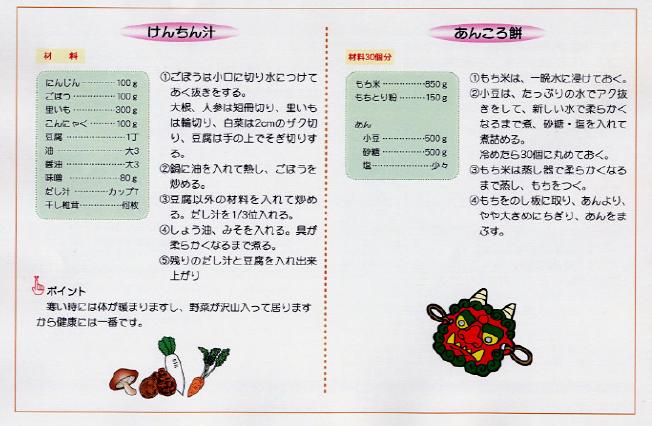 けんちん汁
材　料
にんじん…………100g
ごぼう……………100g
里いも……………300g
こんにゃく………100g
豆腐………………1丁
油…………………大3
醤油………………大3
味噌………………80g
だし汁………カップ7
干し椎茸…………何枚
①ごぼうは小口に切り水につけて
あく抜きをする。
大根、人参は短冊切り、里いも
は輪切り、白菜は2cmのザク切
り、豆腐は手の上でそぎ切りす
る。
②鍋に油を入れて熱し、ごぼうを
炒める。
③豆腐以外の材料を入れて炒め
る。だし汁を1/3位入れる。
④しょう油、みそを入れる。具が
柔らかくなるまで煮る。
⑤残りのだし汁と豆腐を入れ出来
上がり
ポイント
寒い時には体が暖まりますし、野菜が沢山入って居ります
から健康には一番です。
あんころ餅
材料30個分
もち米……………850g
もちとり粉………150g
あん
小豆……………500g
砂糖……………500g
塩………………少々
①もち米は、一晩水に浸けておく。
②小豆は、たっぷりの水でアク抜
きをして、新しい水で柔らかく
なるまで煮、砂糖・塩を入れて
煮詰める。
冷めたら30個に丸めておく。
③もち米は蒸し器で柔らかくなる
まで蒸し、もちをつく。
④もちをのし板に取り、あんより、
やや大きめにちぎり、あんをま
ぶす。